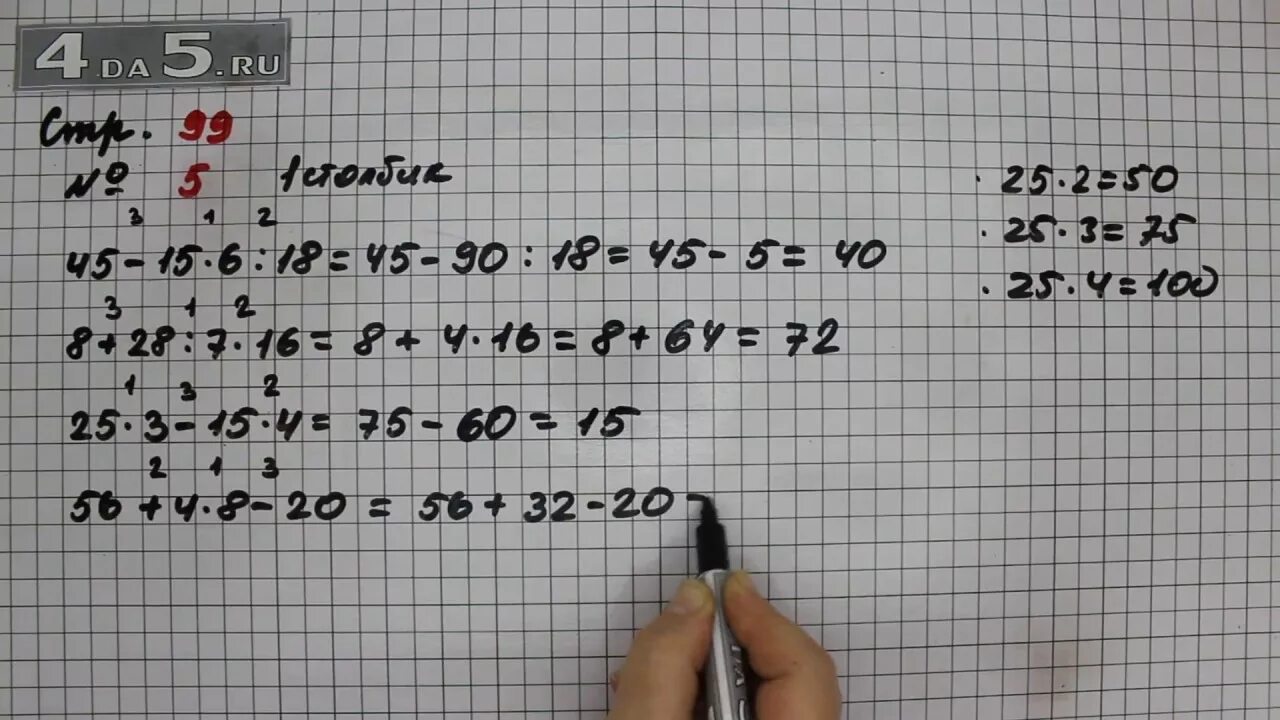 4.DA5.RU
Стр. 99
№ 5 1 столбик
3 1 2
45 - 15 · 6 : 18 = 45 - 90 : 18 = 45 - 5 = 40
3 1 2
8 + 28 : 7 · 16 = 8 + 4 · 16 = 8 + 64 = 72
1 3 2
25 · 3 - 15 · 4 = 75 - 60 = 15
2 1 3
56 + 4 · 8 - 20 = 56 + 32 - 20
· 25 · 2 = 50
· 25 · 3 = 75
· 25 · 4 = 100